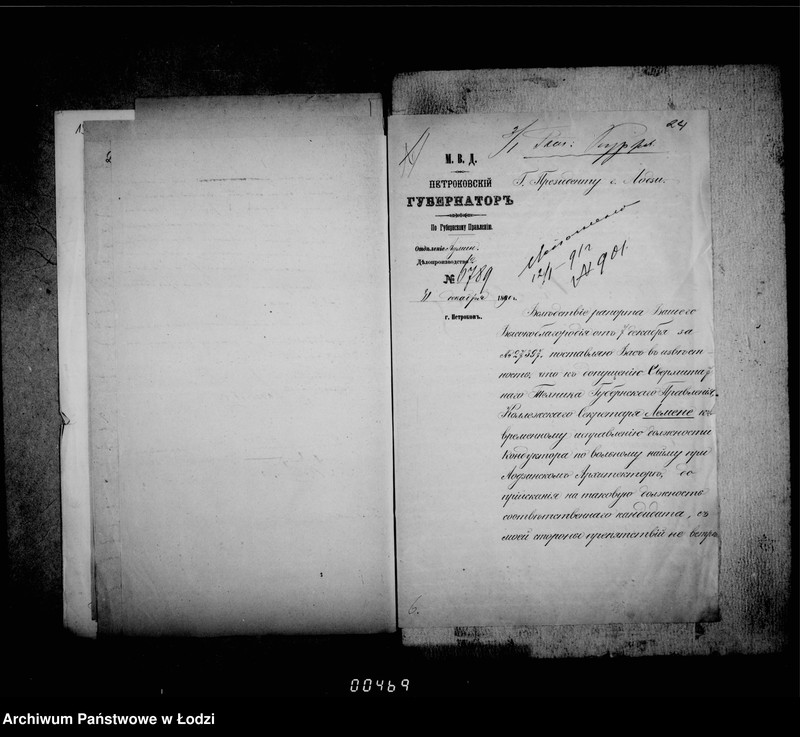 24
М. В. Д.
ПЕТРОКОВСКІЙ
ГУБЕРНАТОРЪ
По Губернскому Правленію.
Отдѣленіе Админ.
Дѣлопроизводство
№ 6789
31 декабря 1890 г.
г. Петроковъ.
Г. Президенту г. Лодзи.
12/I 91 г.
№ 901.
Вслѣдствіе рапорта Вашего
Высокоблагородія отъ 7 декабря за
№ 27327, поставляю Васъ въ извѣст
ность, что къ допущенію Сверхштат
наго Техника Губернскаго Правленія,
Коллежскаго Секретаря Лемене къ
временному исправленію должности
Кондуктора по вольному найму при
Лодзинскомъ Архитекторѣ, до
пріисканія на таковую должность
соотвѣтственнаго кандидата, съ
моей стороны препятствій не встрѣ
6.
00469
Archiwum Państwowe w Łodzi